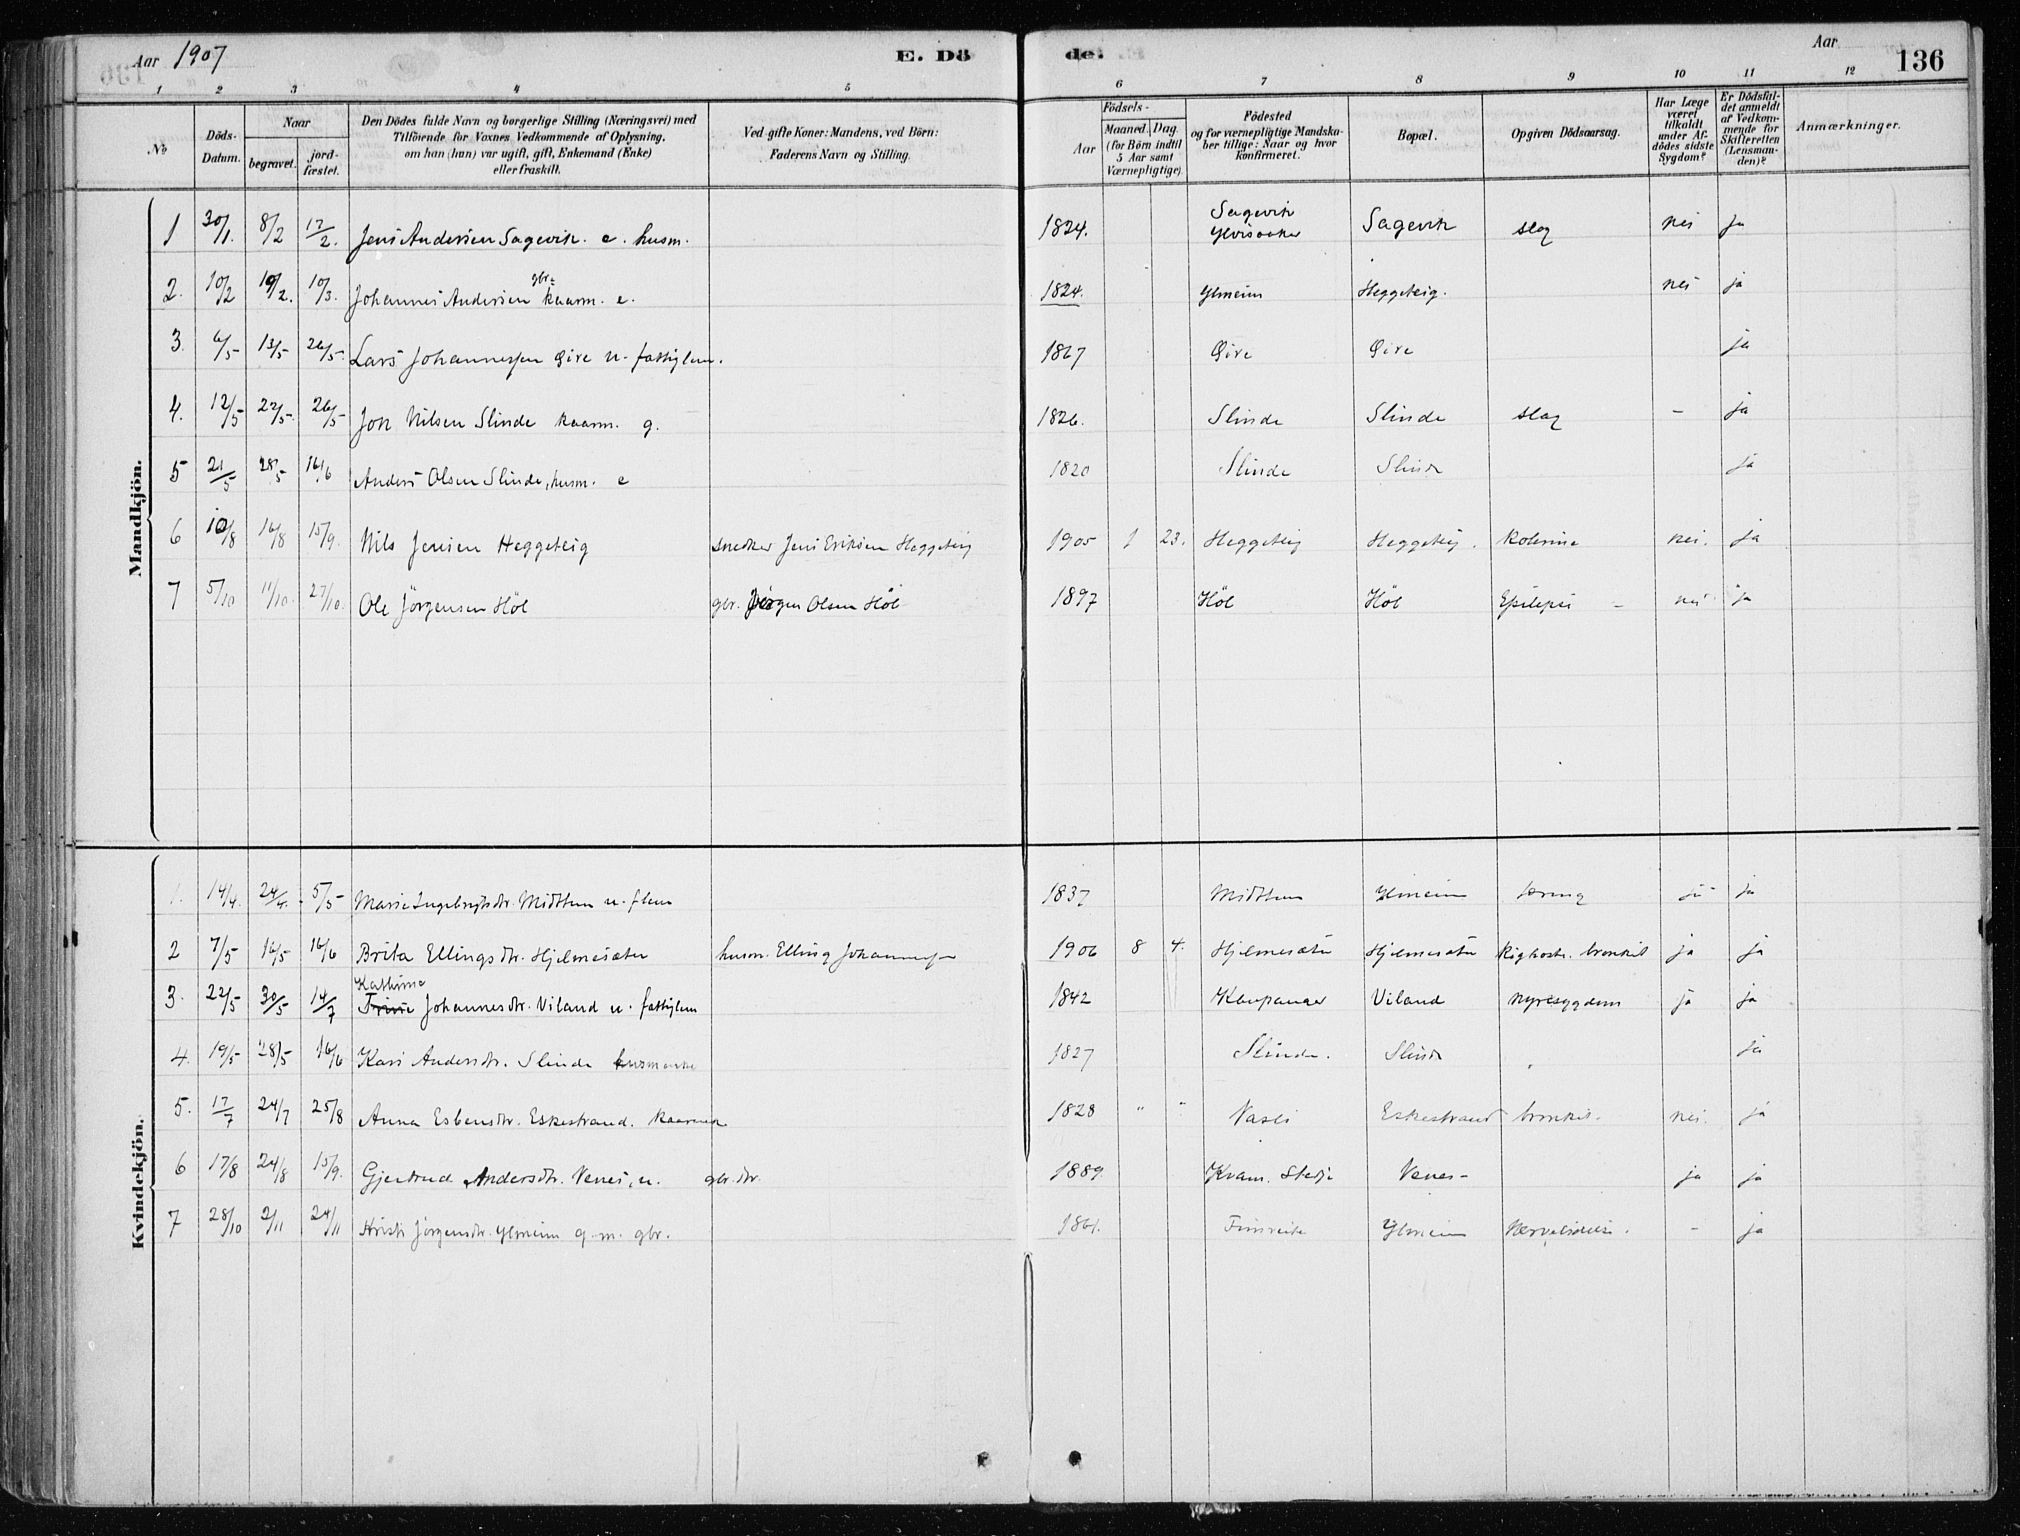 Aar 1907 E. Döde. Aar 136
1 2 3 4 5 6 7 8 9 10 11 12
№ Döds-Datum. Naar begravet. jordfæstet. Den Dödes fulde Navn og borgerlige Stilling (Næringsvei) med Tilföiende for Voxnes Vedkommende af Oplysning, om han (hun) var ugift, gift, Enkemand (Enke) eller fraskilt. Ved gifte Koner: Mandens, ved Börn: Faderens Navn og Stilling. Födsels- Aar Maaned. Dag. (for Börn indtil 5 Aar samt Værnepligtige). Födested og for værnepligtige Mandskaber tillige: Naar og hvor konfirmeret. Bopæl. Opgiven Dödsaarsag. Har Læge været tilkaldt under Afdödes sidste Sygdom? Er Dödsfaldet anmeldt af Vedkommende for Skifteretten (Lensmanden)? Anmærkninger.
Mandkjön.
1 30/1. 8/2 17/2. Jens Andersen Sagevik. e. husm. 1824. Sagevik Ylvisaker Sagevik slag nei ja
2. 10/2 19/2. 10/3. Johannes Andersen gbr. kaarm. e. 1824. Ylmeim Heggeteig. nei ja
3. 6/5 13/5 26/5. Lars Johannessen Øire u. fattiglem. 1867 Øire Øire ja
4. 12/5 22/5. 26/5 Jon Nilsen Slinde kaarm. g. 1826. Slinde Slinde slag - ja
5 21/5 28/5 16/6 Anders Olsen Slinde, husm. e 1820 Slinde Slinde ja
6 10/8 16/8 15/9. Nils Jensen Heggeteig snedker Jens Eriksen Heggeteig 1905 1 23. Heggeteig Heggeteig. kolerine nei. ja
7 5/10 11/10. 27/10. Ole Jörgensen Höl gbr. Jörgen Olsen Höl 1897 Höl Höl Epilepsi - nei ja
Kvindekjön.
1. 14/4. 24/4. 5/5 Marie Ingebrigtsdtr. Midttun u. flem 1837 Midttun Ylmeim tæring ja ja
2 7/5 16/5 16/6 Brita Ellingsdtr. Hjelmesæter husm. Elling Johannessen 1906 8 4. Hjelmesæter Hjelmesæter kighoste. bronkit ja ja
Kathrine
3. 22/5 30/5 14/7 Trine Johannesdtr. Viland u. fattiglem 1842 Kaupanger Viland nyresygdom ja ja
4. 19/5 28/5 16/6 Kari Andersdtr. Slinde husmenke 1827 Slinde. Slinde ja
5. 17/7 24/7 25/8 Anna Esbensdtr. Eskestrand. kaarenke 1828 " " Eskestrand bronkit. nei. ja
6 17/8 24/8 15/9. Gjertrud Andersdtr. Venes, u. gbr. dtr. 1889. Kvam. Stedje Venes- ja ja
7 28/10 2/11 24/11 Kristi Jörgensdtr. Ylmeim g.m. gbr. 1861. Fimreite Ylmeim Nervelidelse. - ja